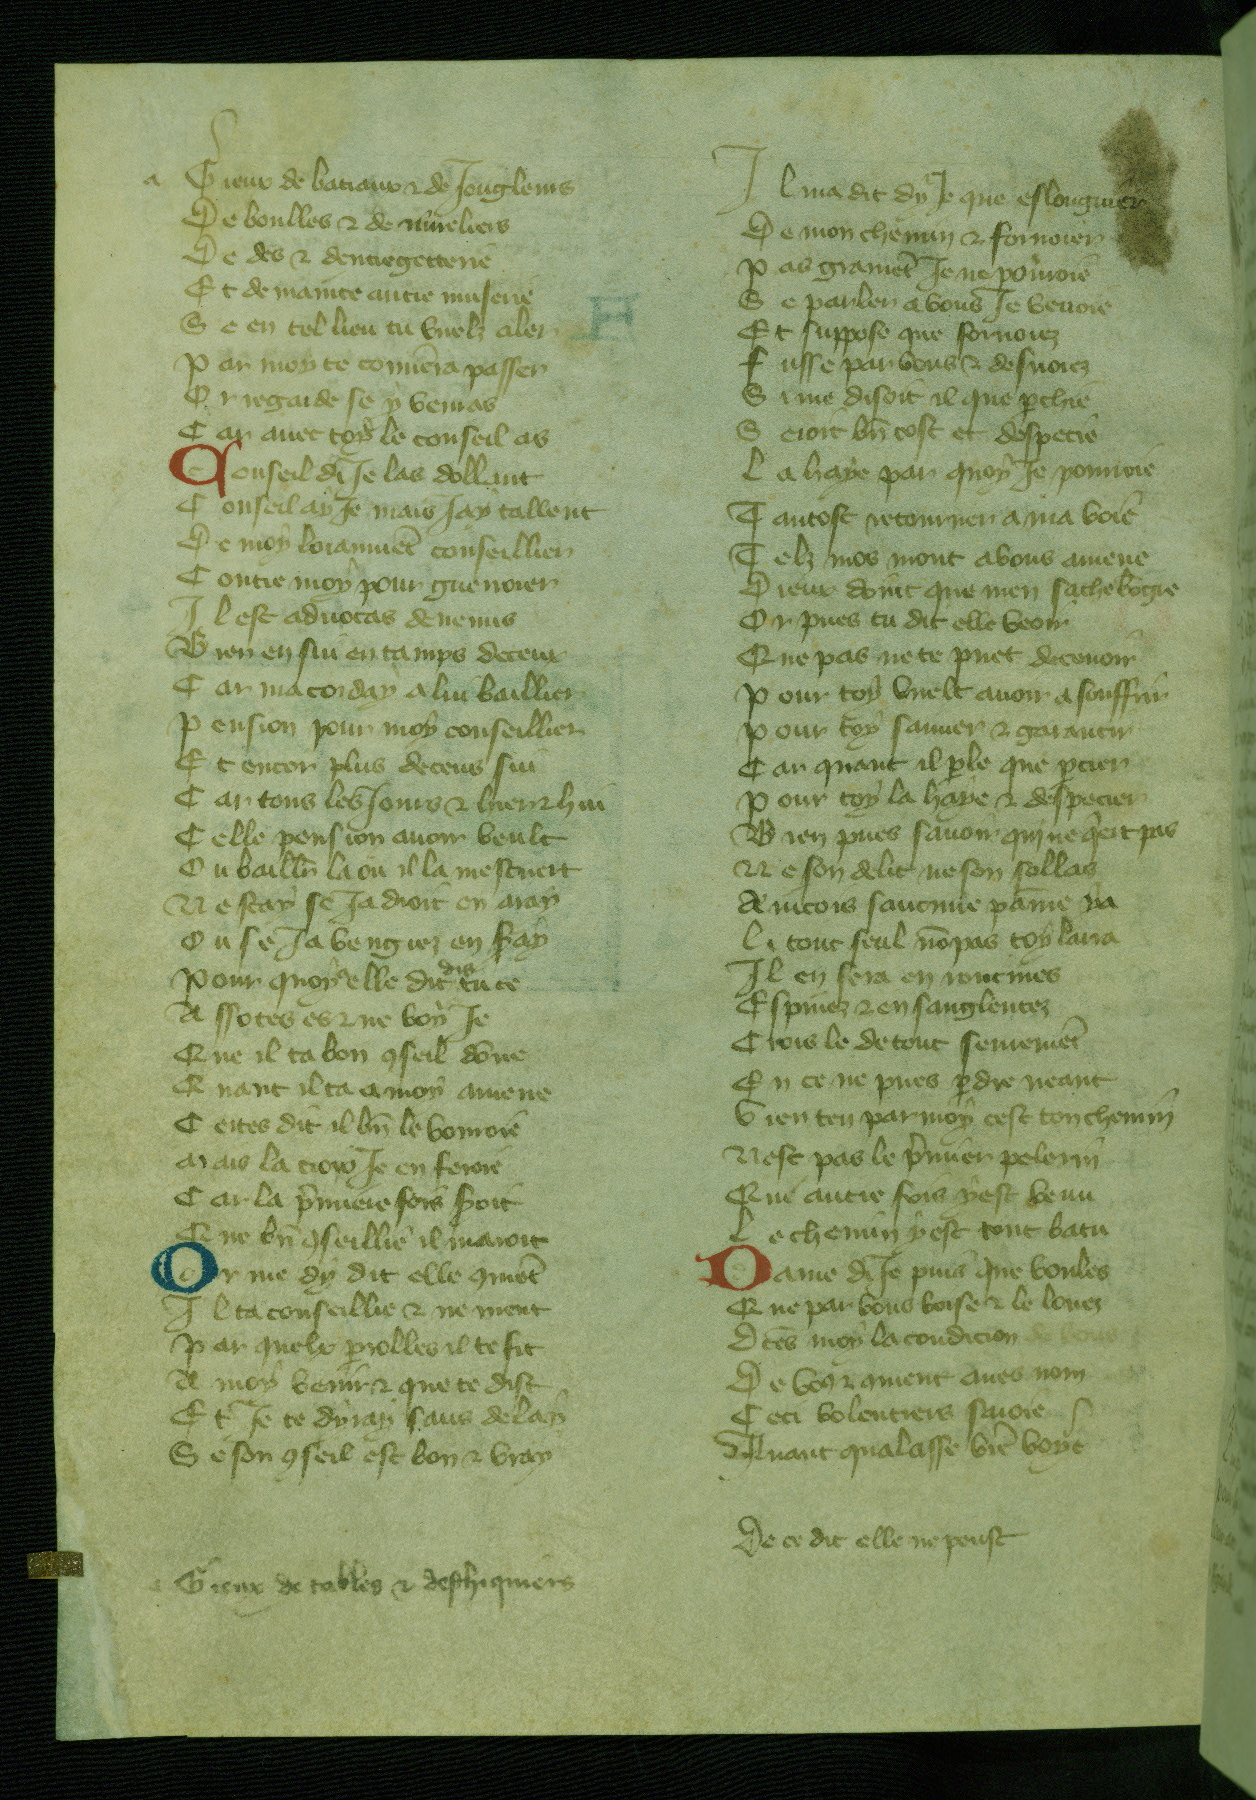 a Gieux de batiaux ⁊ de Jougleurs
De boulles ⁊ de
De des ⁊ dentregetterie
Et de mainte autre muserie
Se en tel lieu tu vuelz aler
Par moy te conuēra passer
Or regarde se y venras
Car auec toy le conseil as
Conseil di Je las dollant
Conseil ay Je mais Jay tallent
De moy loiaumēt conseillier
Contre moy pour guerroier
Il est aduocas de nemus
Bien en sui en tamps deceux
Car macorday a lui baillier
Pension pour moy conseillier
Et encor plus deceus sui
Car tous les Jours ⁊ hier ⁊ hui
Celle pension auoir veult
Ou baillr̄ la ou il la mescueit
Ne scay se Ja droit en aray
Ou se Ja vengier en scay
Pour quoy elle dit dis tu ce
Assotes es ⁊ ne voy Je
Que il ta bon ꝯseil dōne
Quant il ta a moy amene
Certes dit il bn̄ le vorroie
Mais la croix Je en feroie
Car la p̄miere fois seroit
Que bn̄ ꝯseillié il maroit
Or me dy dit elle ꝯmēt
Il ta conseillie ⁊ ne ment
Par quelx ꝑolles il te fit
A moy venir ⁊ que te dist
Et Je te dyray sans delay
Se son ꝯseil est bon ⁊ vray
a Gieux de tables ⁊ deschiquiers
Il ma dit dy Je que eslongnier
De mon chemin ⁊ foruoier
Pas gramēt Je ne porroie
Se parler a vous Je venoie
Et suppose que foruoiez
Fusse par vous ⁊ desuoiez
Si me disoit il que ꝑchie
Seroit bn̄ tost et despecie
La haye par quoy Je pourroie
Tantost retourner a ma voie
Telz mos mont a vous amene
Dieux doint que men sache
Or pues tu dit elle veoir
Que pas ne te puet deceuoir
Pour toy vuelt auoir a souffrir
Pour toy sauuer ⁊ garantir
Car quant il ꝑle que ꝑcier
Pour toy la haye ⁊ despecier
Bien pues sauoir qui ne q̄ert pas
Ne son delit ne son sollas
Aincois
Li tout seul nō pas toy lara
Il en sera en
Espinez ⁊ ensanglentez
Crois le de tout seuremēt
En ce ne pues ꝑdre neant
Vien ten par moy cest ton chemin
Nest pas le p̄mier pelerin
Que autre fois y est venu
Le chemin y est tout batu
Dame di Je puis que voules
Que par vous voise ⁊ le louez
Dites moy la condicion de vous
De vous ⁊ ꝯment aues nom
Ceci volentiers sauroie
Auant qualasse vrē voye
De ce dit elle ne peust